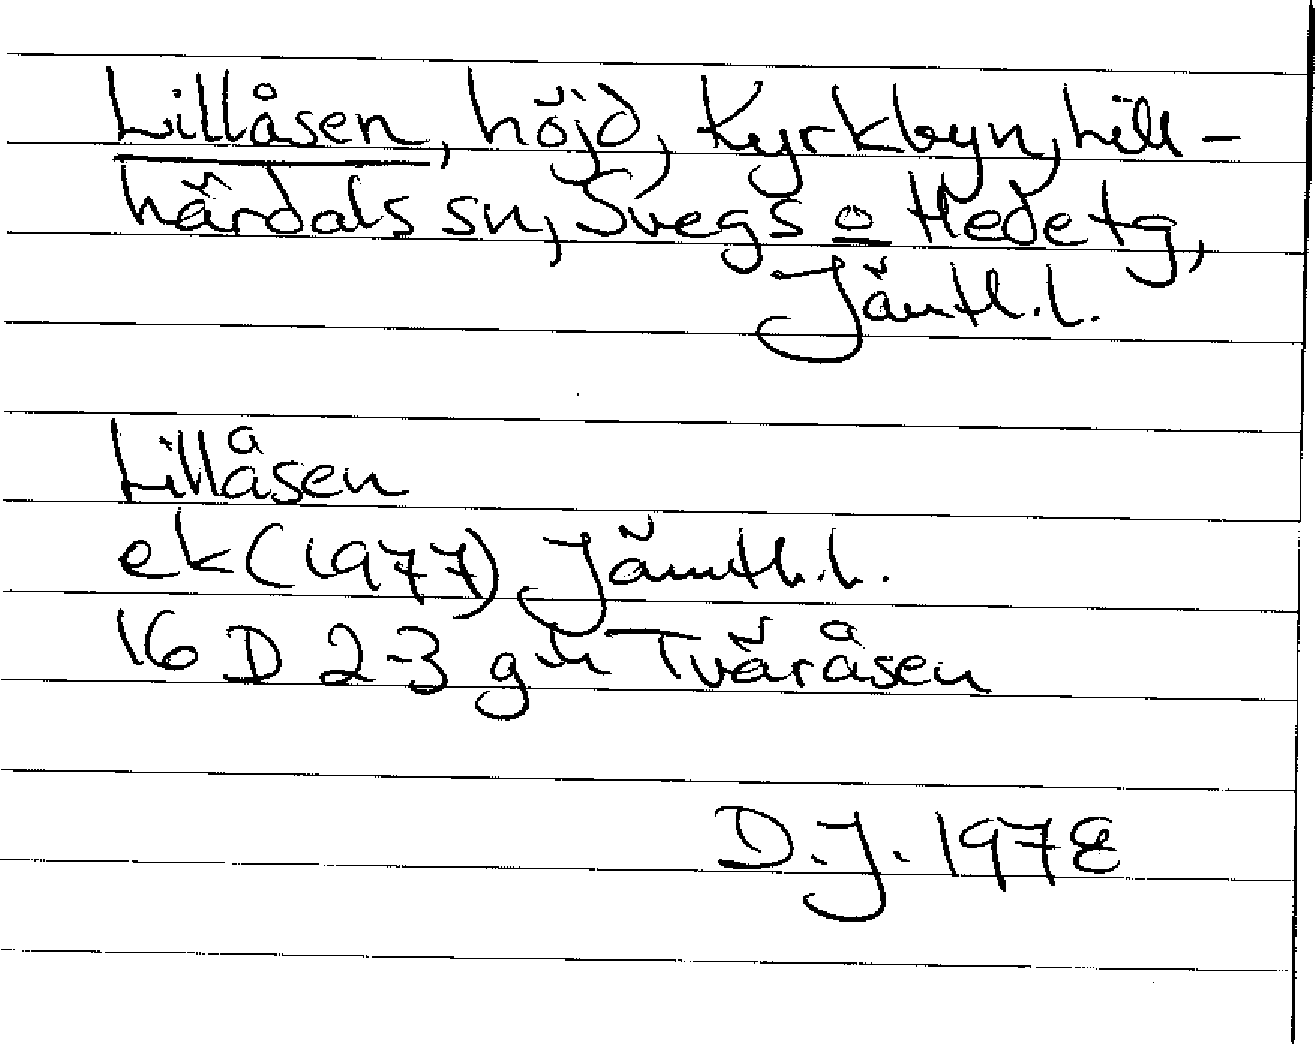 Lillåsen, höjd, Kyrkbyn, Lill-
härdals sn, Svegs o Hede tg,
Jämtl.l.
Lillåsen
ek (1977) Jämtl.l.
16 D 2-3 g-h Tväråsen
D.J. 1978